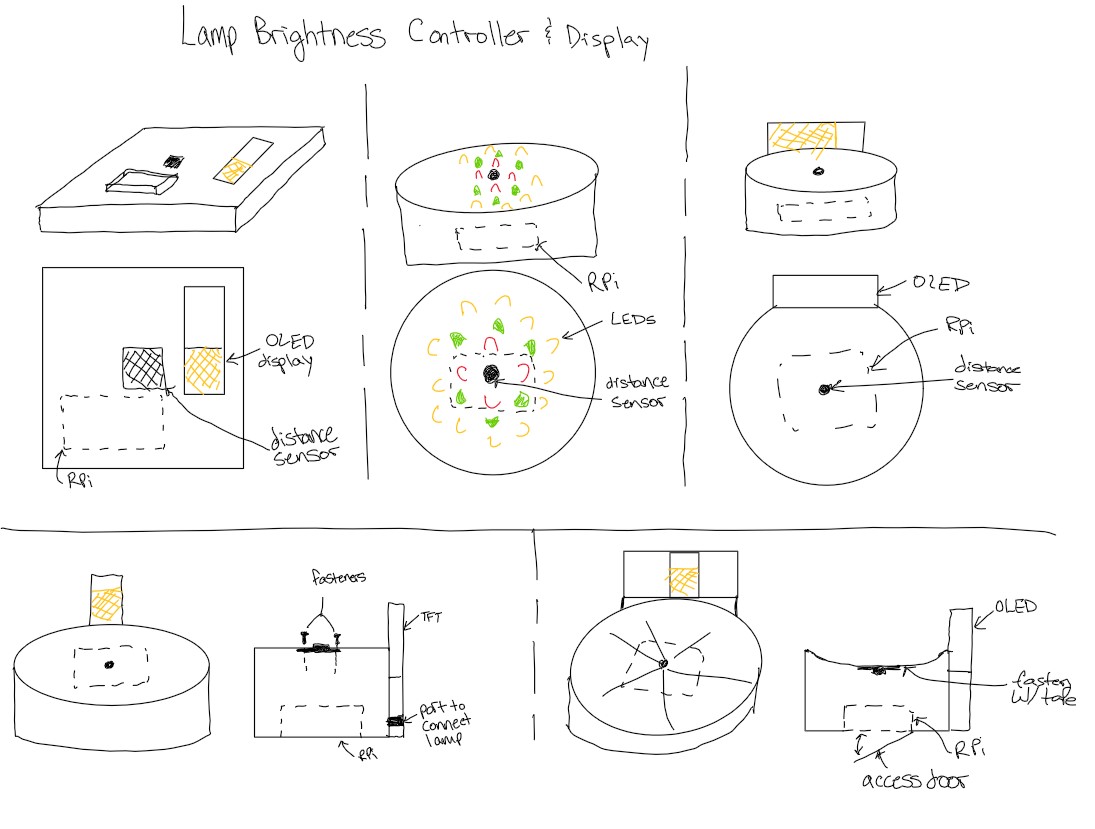 Lamp Brightness Controller & Display
OLED
display
distance
sensor
RPi
RPi
LEDs
distance
sensor
OLED
RPi
distance
sensor
fasteners
TFT
port to
connect
lamp
RPi
OLED
fasten
w/ tape
RPi
access door